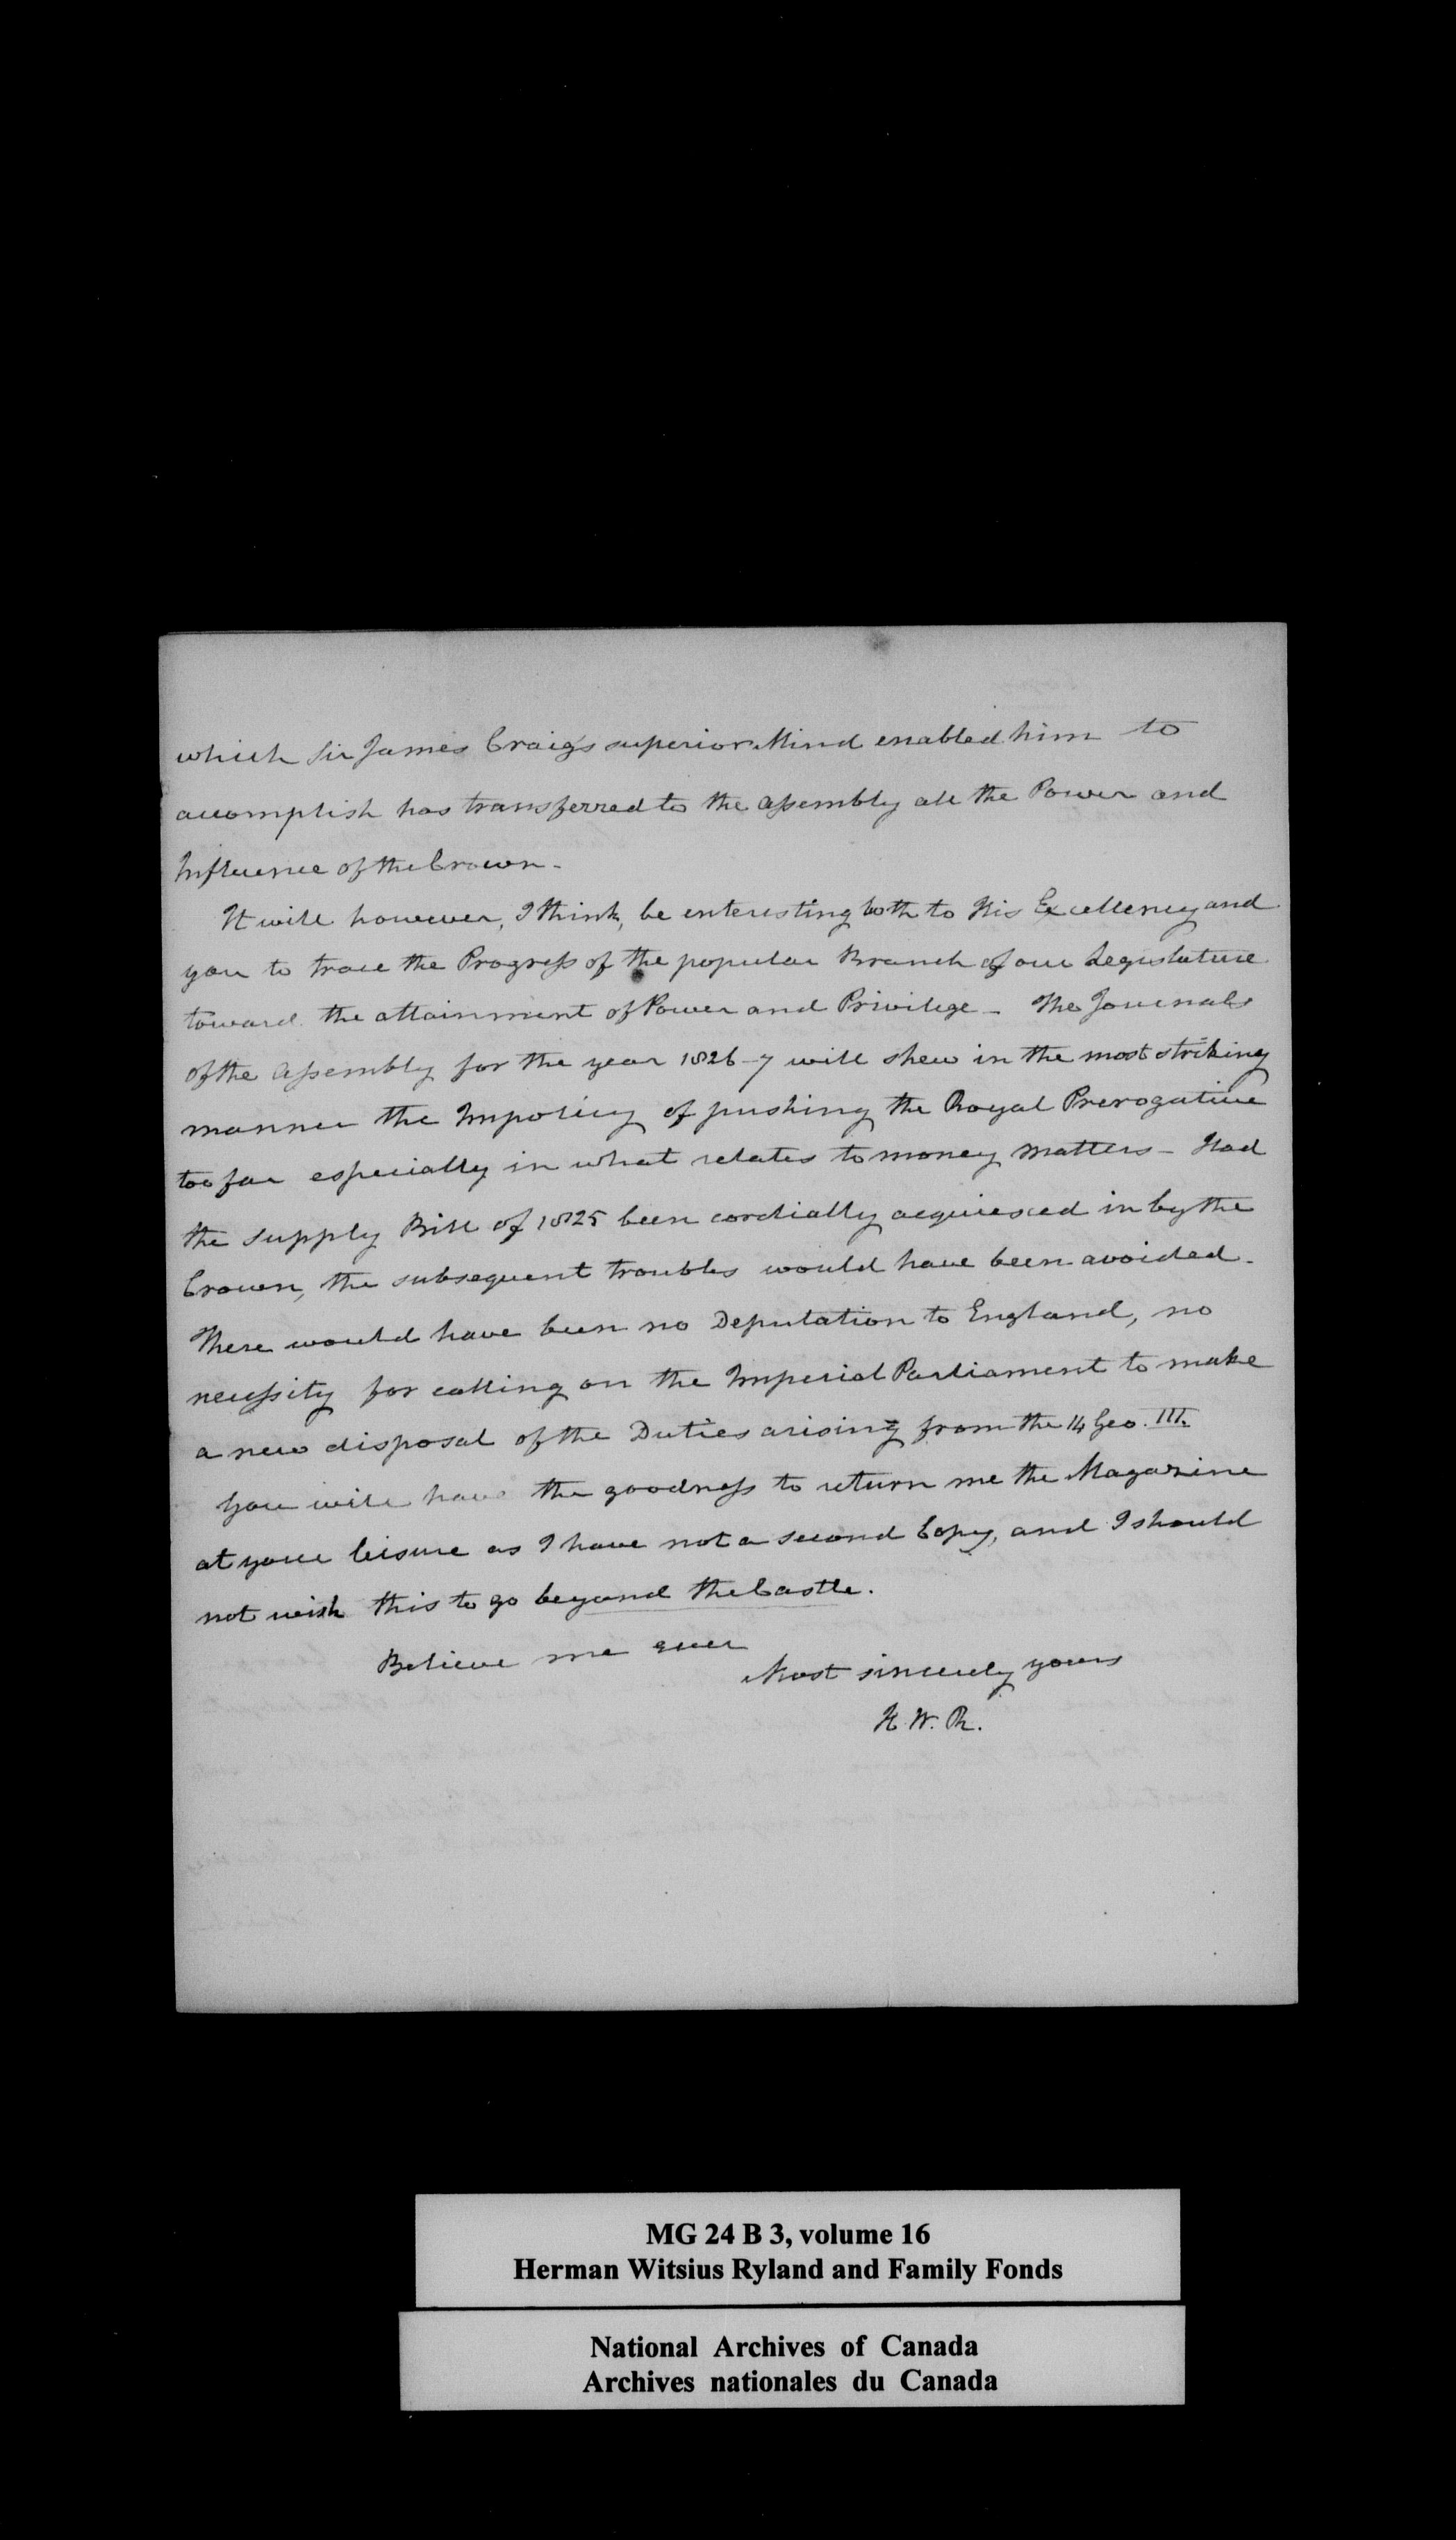 which Sir James Craig's superior Mind enabled him to
accomplish has transferred to the Assembly all the Power and
Influence of the Crown -
It will however, I think, be enteresting both to His Excellency and
you to trace the Progress of the popular Branch of our Legislature
toward the attainment of Power and Privilege - The Journals
of the Assembly for the year 1826-7 will shew in the most striking
manner the Impolicy of pushing the Royal Prerogative
too far especially in what relates to money matters - Had
the Supply Bill of 1825 been cordially acquiesced in by the
Crown, the subsequent troubles would have been avoided -
There would have been no Deputation to England, no
necessity for calling on the Imperial Parliament to make
a new disposal of the Duties arising from the 14 Geo. III.
You will have the goodness to return me the Magazine
at your leisure as I have not a second Copy, and I should
not wish this to go beyond the Castle.
Believe me ever
Most sincerely yours
H. W. R.
MG 24 B 3, volume 16
Herman Witsius Ryland and Family Fonds
National Archives of Canada
Archives nationales du Canada